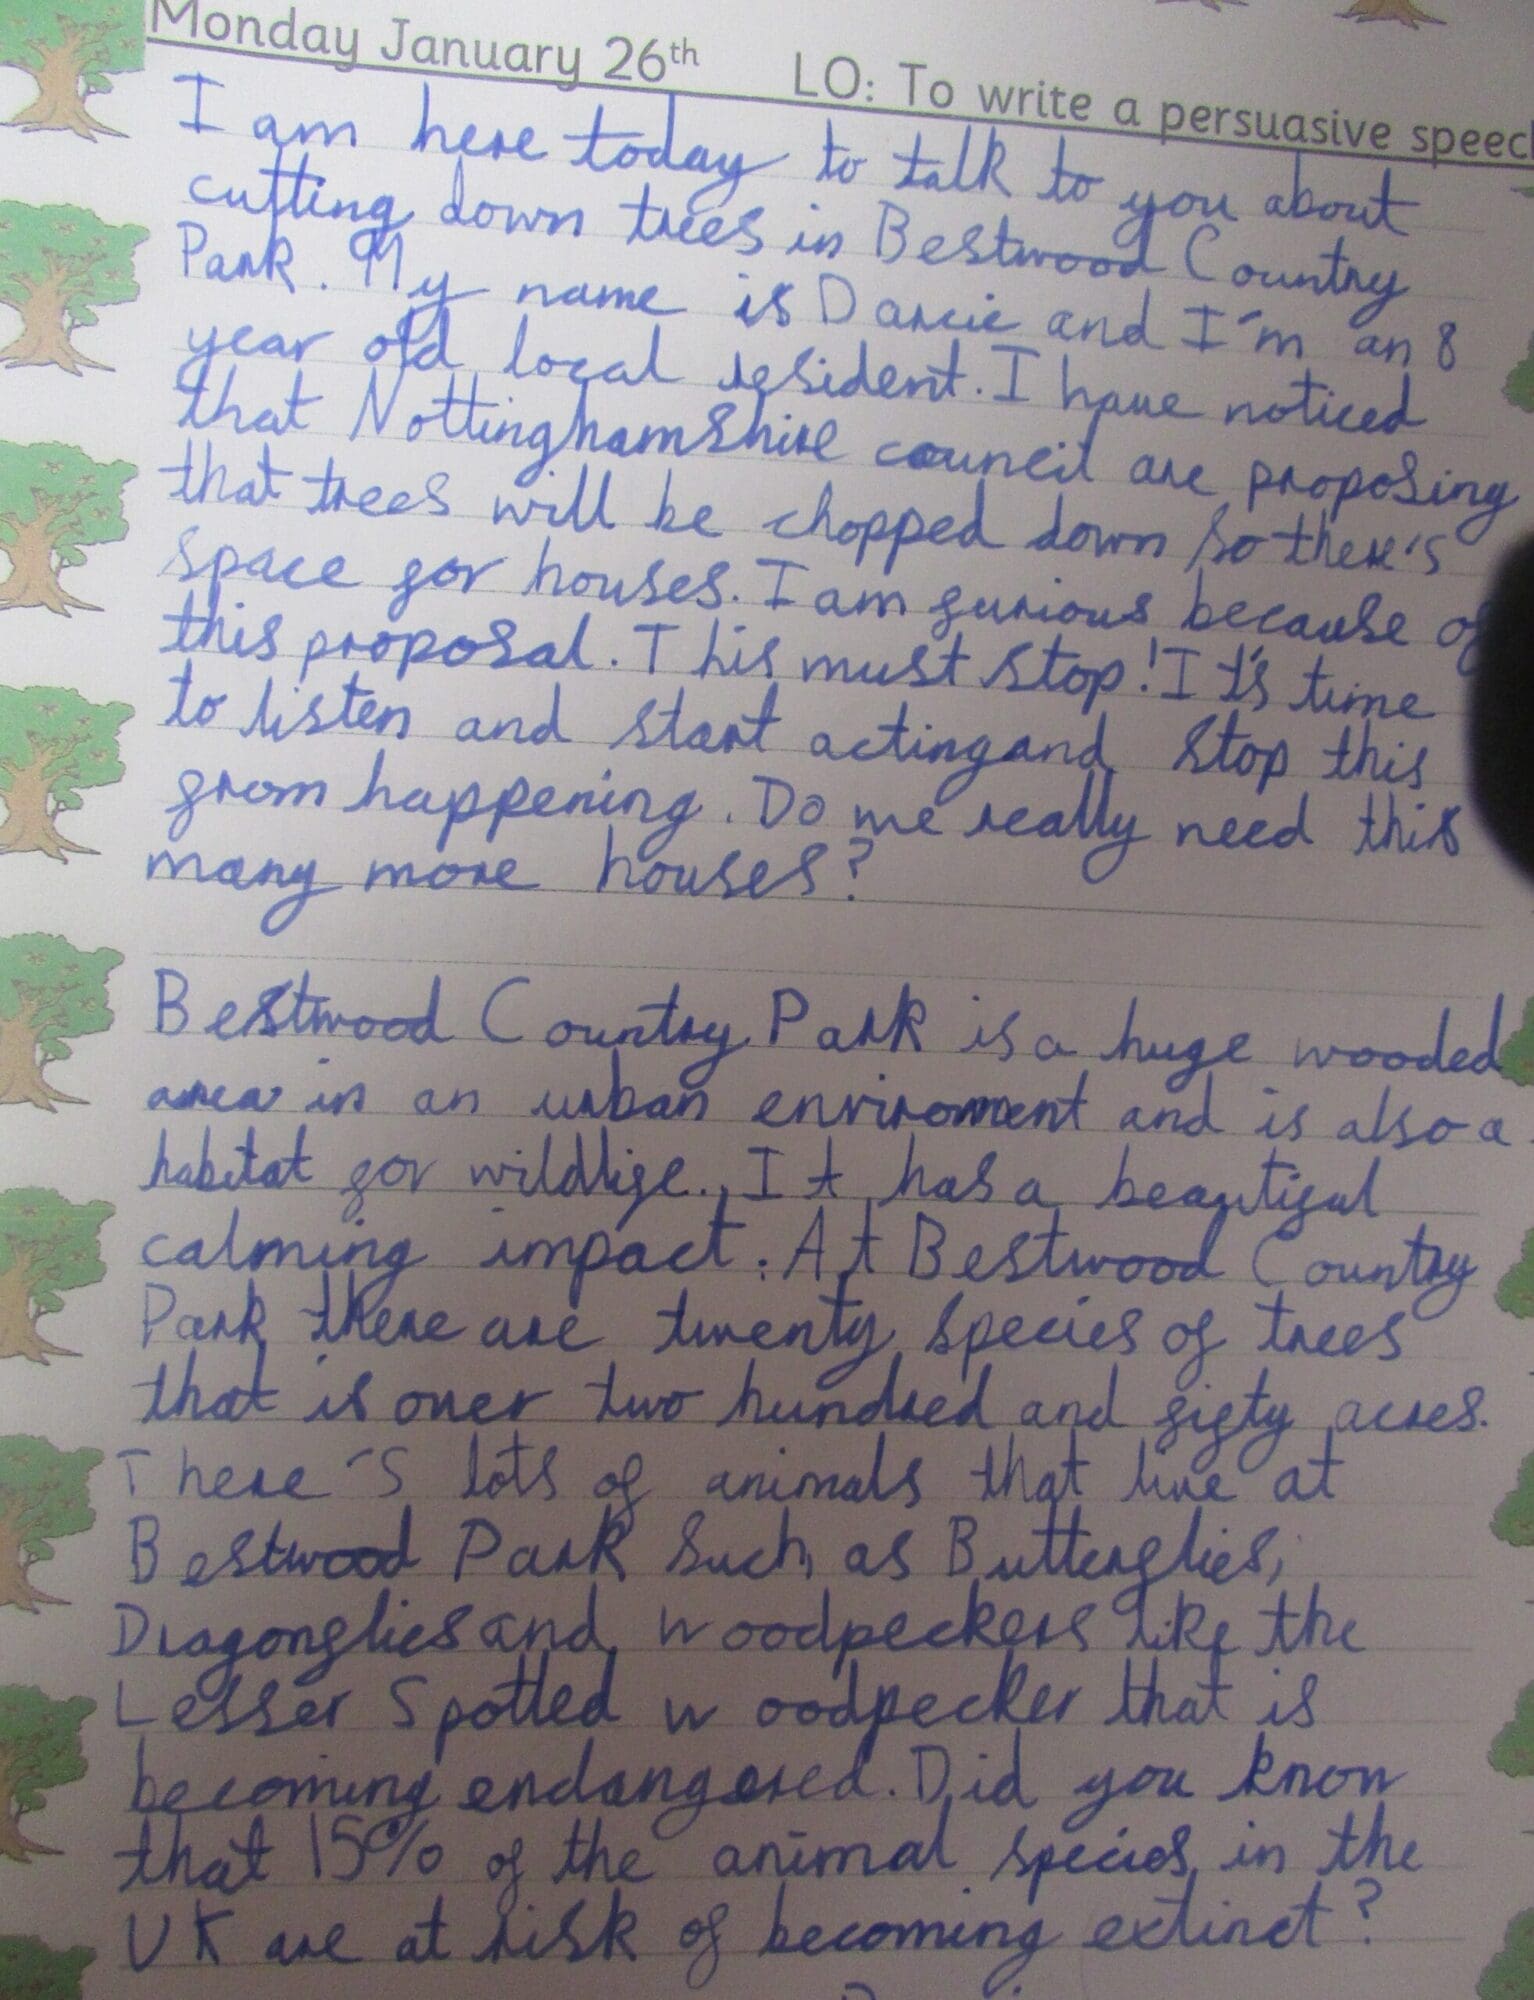 Monday January 26th LO: To write a persuasive speech
I am here today to talk to you about
cutting down trees in Bestwood Country
Park. My name is Darcie and I'm an 8
year old local resident. I have noticed
that Nottinghamshire council are proposing
that trees will be chopped down so there's
space for houses. I am furious because of
this proposal. This must stop! It's time
to listen and start acting and stop this
from happening. Do we really need this
many more houses?
Bestwood Country Park is a huge wooded
area in an urban enviroment and is also a
habitat for wildlife. It has a beautiful
calming impact. At Bestwood Country
Park there are twenty species of trees
that is over two hundred and fifty acres.
There's lots of animals that live at
Bestwood Park such as Butterflies,
Dragonflies and woodpeckers like the
Lesser Spotted woodpecker that is
becoming endangered. Did you know
that 15% of the animal species in the
UK are at risk of becoming extinct?